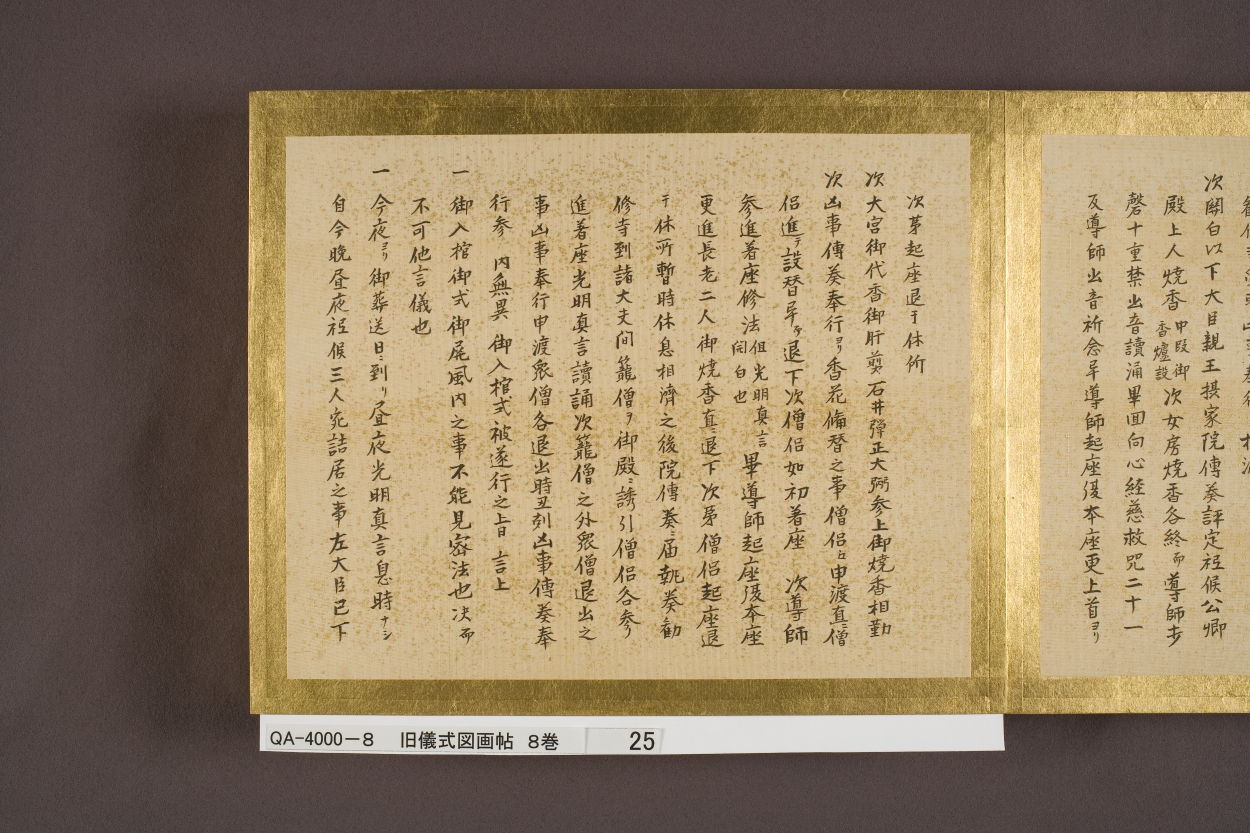 次關白以下大臣親王摂家院傳奏評定祗候公卿
殿上人焼香 中段御香爐設 次女房焼香各終而導師步
磬十重禁出音讀誦畢回向心経慈救咒二十一
及導師出音祈念畢導師起座復本座更上首ヨリ
次第起座退于休所
次大宮御代香御肝煎石井弾正大弼参上御焼香相勤
次凶事傳奏奉行ヨリ香花備替之事僧侶ヱ申渡直ニ僧
侶進テ設替畢テ退下次僧侶如初著座 次導師
参進著座修法 但光明真言開白也 畢導師起座復本座
更進長老二人御焼香直ニ退下次第僧侶起座退
于休所暫時休息相濟之後院傳奏ニ届執奏勧
修寺到諸大夫間籠僧ヲ御殿ニ誘引僧侶各参
進著座光明真言讀誦次籠僧之外衆僧退出之
事凶事奉行申渡衆僧各退出時丑刻凶事傳奏奉
行参 内無異 御入棺式被遂行之旨 言上
一御入棺御式御屏風内之事不能見密法也决而
不可他言儀也
一今夜ヨリ御葬送日ニ到リ昼夜光明真言息時ナシ
自今晩昼夜祗候三人宛詰居之事左大臣已下
QA-4000-8 旧儀式図画帖 8巻 25